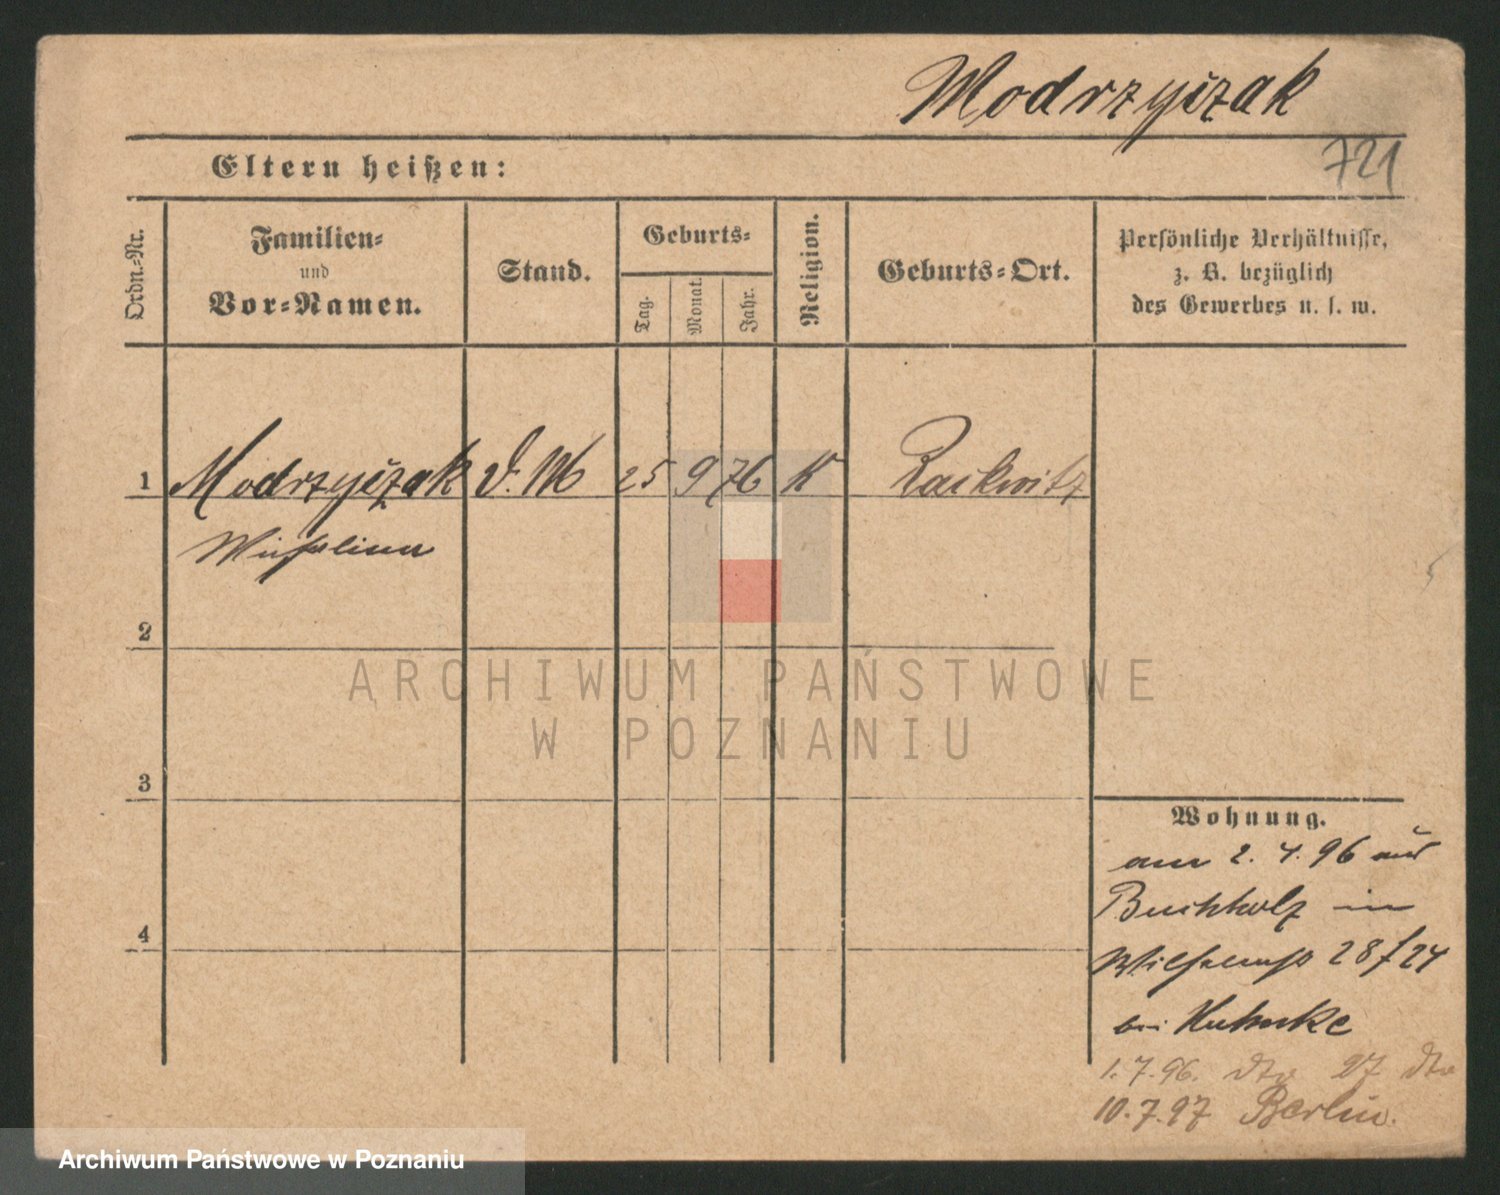 Modrzyczak
721
Eltern heißen:
Ordn.-Nr.
Familien-
und
Vor-Namen.
Stand.
Geburts-
Tag.
Monat.
Jahr.
Religion.
Geburts-Ort.
Persönliche Verhältnisse,
z. B. bezüglich
des Gewerbes u. s. w.
1 Modrzyczak d. M 25 9 76 K Rackwitz
2
3
4
ARCHIWUM PAŃSTWOWE
W POZNANIU
Wohnung.
am 2. 4. 96 aus
Buchholz in
28/24
bei
1.7.96. dto 27 dto
10.7.97 Berlin.
Archiwum Państwowe w Poznaniu